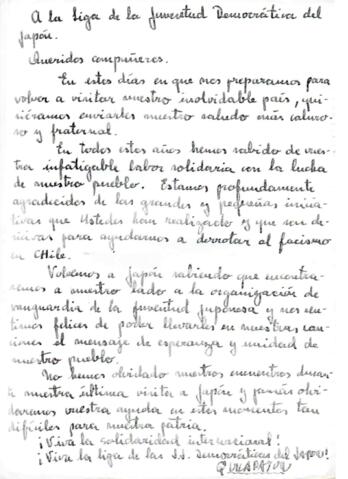 A la Liga de la Juventud Democrática del
Japón.
Queridos compañeros.
En estos días en que nos preparamos para
volver a visitar vuestro inolvidable país, qui-
siéramos enviarles nuestro saludo más caluro-
so y fraternal.
En todos estos años hemos sabido de vues-
tra infatigable labor solidaria con la lucha
de nuestro pueblo. Estamos profundamente
agradecidos de las grandes y pequeñas inicia-
tivas que Ustedes han realizado y que son de-
cisivas para ayudarnos a derrotar al facismo
en Chile.
Volvemos a Japón sabiendo que encontra-
remos a nuestro lado a la organización de
vanguardia de la juventud japonesa y nos sen-
timos felices de poder llevarles en nuestras can-
ciones el mensaje de esperanza y unidad de
nuestro pueblo.
No hemos olvidado nuestros encuentros duran-
te nuestra última visita a Japón y jamás olvi-
daremos vuestra ayuda en estos momentos tan
difíciles para nuestra patria.
¡Viva la solidaridad internacional!
¡Viva la Liga de las JJ. Democráticas del Japón!
QUILAPAYUN